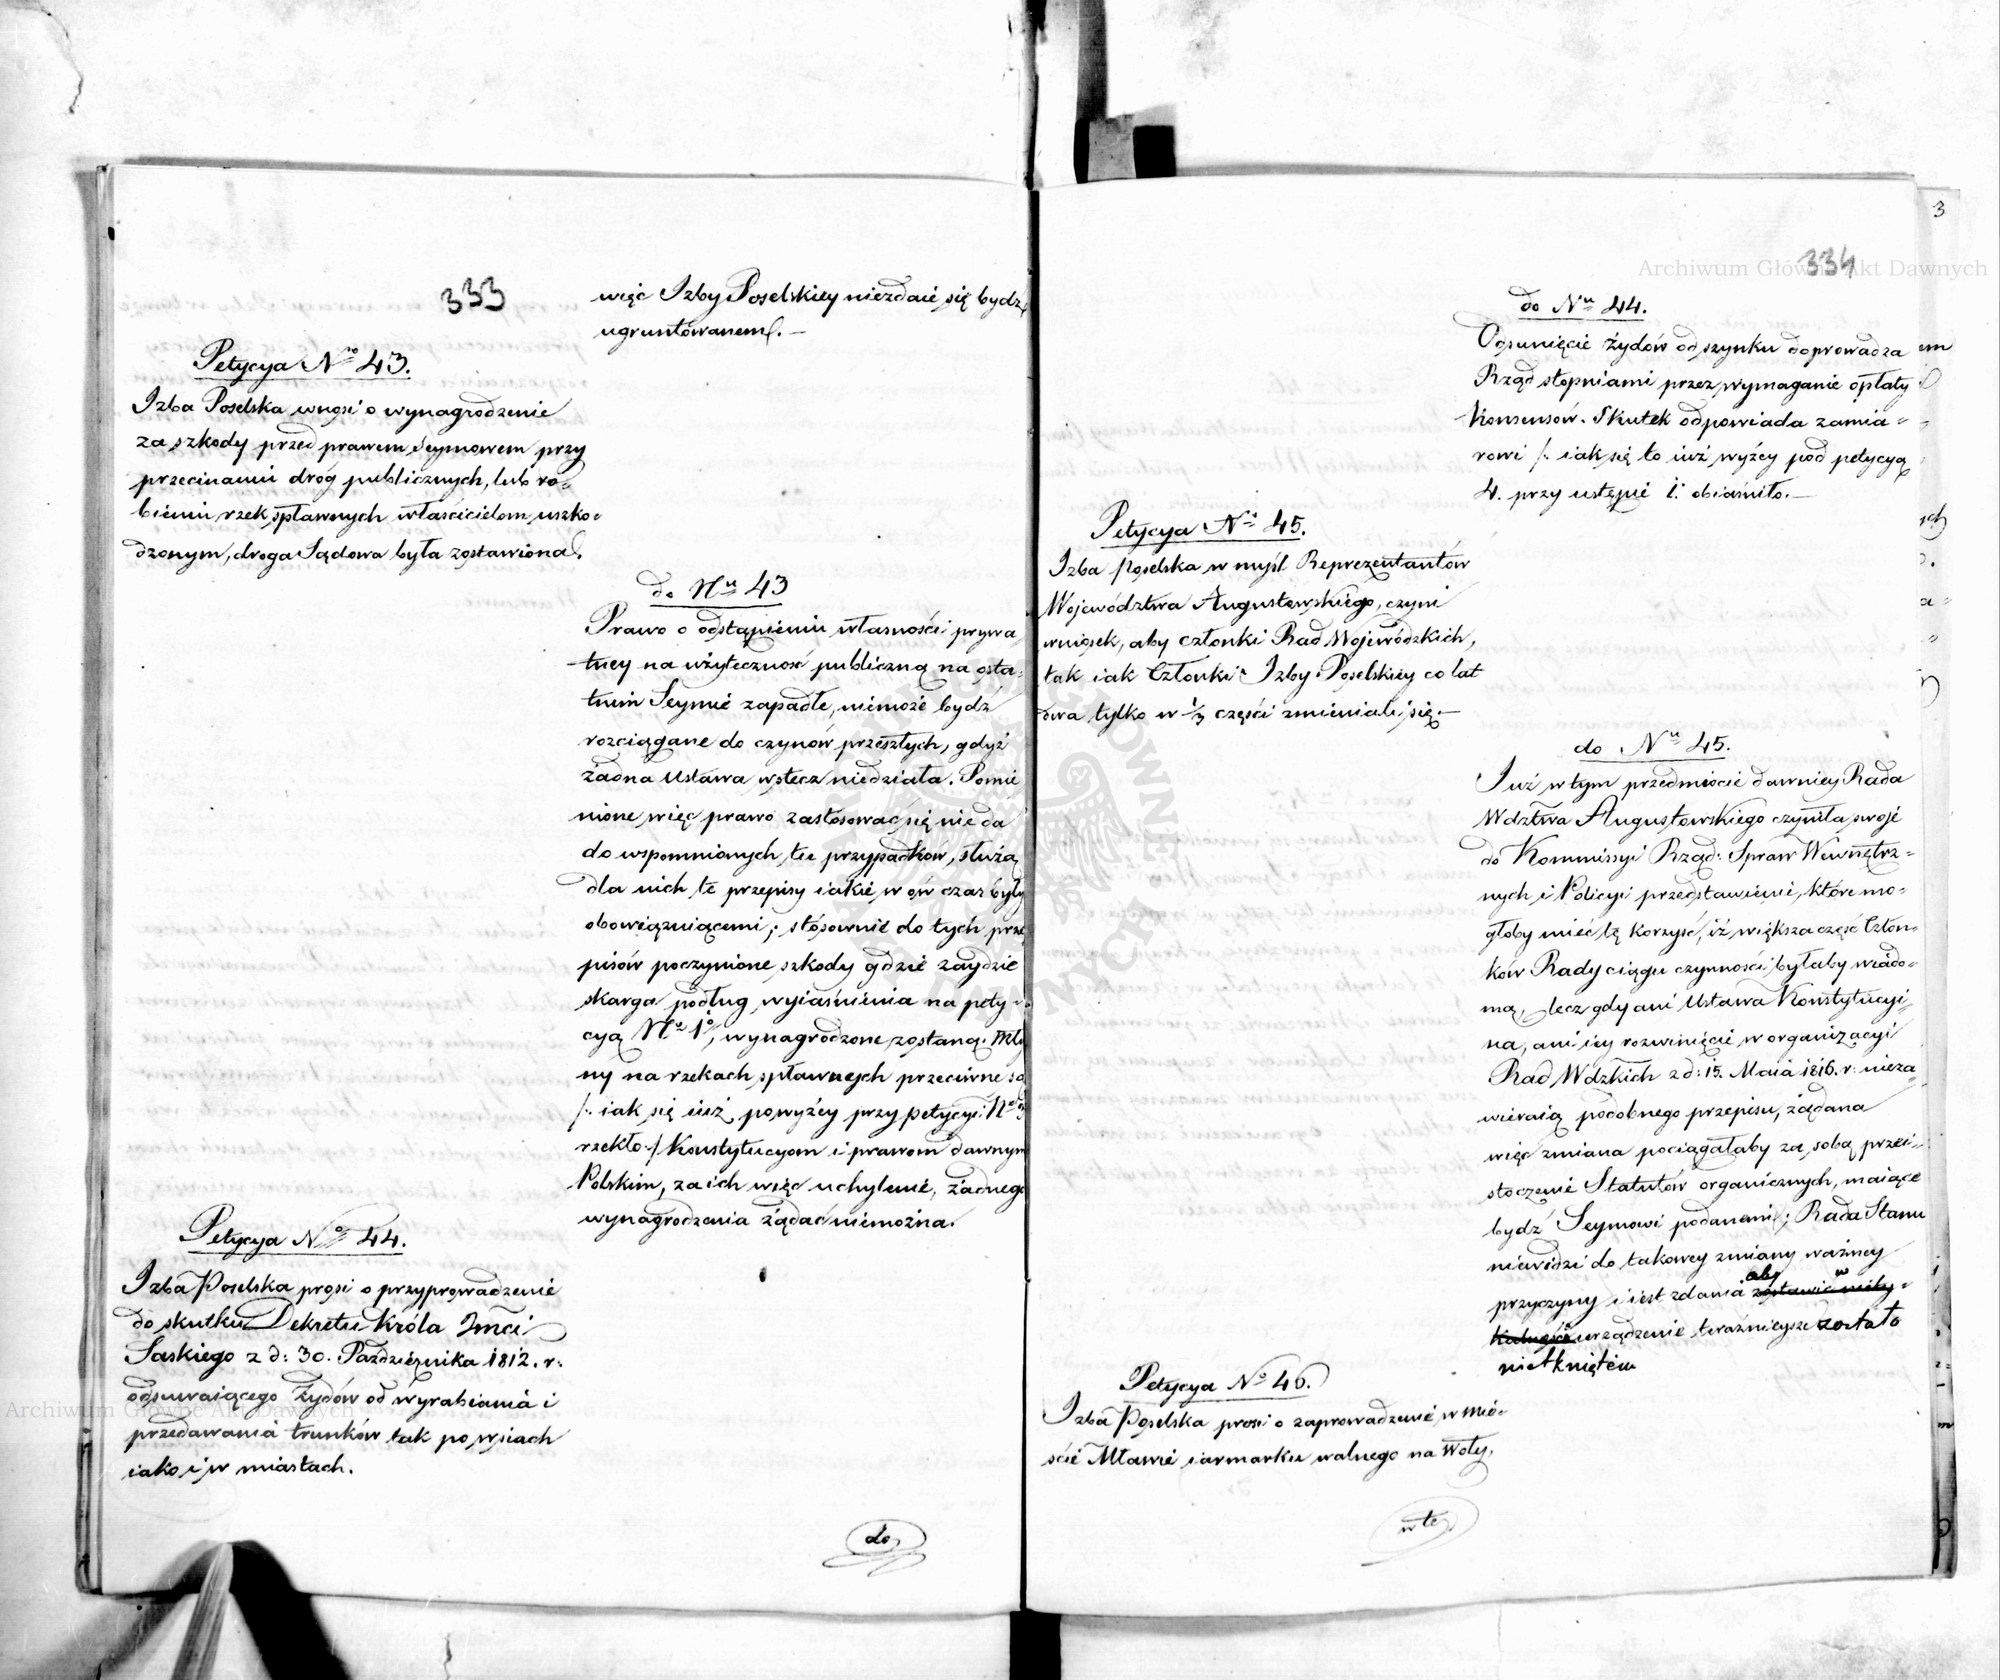 333
więc Izby Poselskiey niezdaie się bydź
ugruntowanem. —
Petycya No 43.
Izba Poselska wnosi o wynagrodzenie
za szkody przed prawem Seymowem przy
przecinaniu dróg publicznych, lub ro=
bieniu rzek spławnych właścicielom uszko=
dzonym, droga Sądowa była zostawiona.
do Nu 43
Prawo o odstąpieniu własności prywa
tney na użyteczność publiczną na osta=
tnim Seymie zapadłe, niemoże bydź
rozciągane do czynów przeszłych, gdyż
żadna Ustawa wstecz niedziała. Pomie
nione więc prawo zastosować się nie da
do wspomnionych tu przypadków, służą
dla nich te przepisy iakie w ów czas były
obowięzuiącemi; stósownie do tych prze
pisów poczynione szkody gdzie zaydzie
skarga podług wyiaśnienia na pety=
cyą No 1o, wynagrodzone zostaną. Mły
ny na rzekach spławnych przeciwne są
/: iak się iuż powyżey przy petycyi No 3
rzekło :/ Konstytucyom i prawom dawnym
Polskim, za ich więc uchylenie, żadnego
wynagrodzenia żądać niemożna.
Petycya No 44.
Izba Poselska prosi o przyprowadzenie
do skutku Dekretu Króla Jmci
Saskiego z d: 30. Października 1812. r:
odsuwaiącego Żydów od wyrabiania i
przedawania trunków tak po wsiach
iako i w miastach.
do
334
do Nu 44.
Odsunięcie Żydów od szynku doprowadza
Rząd stopniami przez wymaganie opłaty
Konsensów. Skutek odpowiada zamia=
rowi /: iak się to iuż wyżey pod petycyą
4. przy ustępie i: obiaśniło. —
Petycya No 45.
Izba Poselska w myśl Reprezentantów
Województwa Augustowskiego, czyni
wniosek, aby członki Rad Wojewódzkich,
tak iak Członki Izby Poselskiey co lat
dwa tylko w 1/3 części zmieniali się. —
do Nu 45.
Już w tym przedmiocie dawniey Rada
Wdztwa Augustowskiego czyniła swoje
do Kommissyi Rząd: Spraw Wewnętrz=
nych i Policyi przedstawienie, które mo=
głoby mieć tę korzyść, iż większa część Człon=
ków Rady ciągu czynności byłaby wiado=
mą, lecz gdy ani Ustawa Konstytucyi=
na, ani iey rozwinięcie w organizacyi
Rad Wdzkich z d: 15. Maia 1816. r: nieza=
wieraią podobnego przepisu, żądana
więc zmiana pociągałaby za sobą przei=
stoczenie Statutów organicznych, maiące
bydź Seymowi podanemi; Rada Stanu
niewidzi do takowey zmiany ważney
przyczyny i iest zdania aby zostawić w niety=
kalności urządzenie teraźnieysze zostało
nietkniętém
Petycya No 46.
Izba Poselska prosi o zaprowadzenie w mie=
ście Mławie iarmarku walnego na Woły,
w te
3
Archiwum Główne Akt Dawnych
Archiwum Główne Akt Dawnych